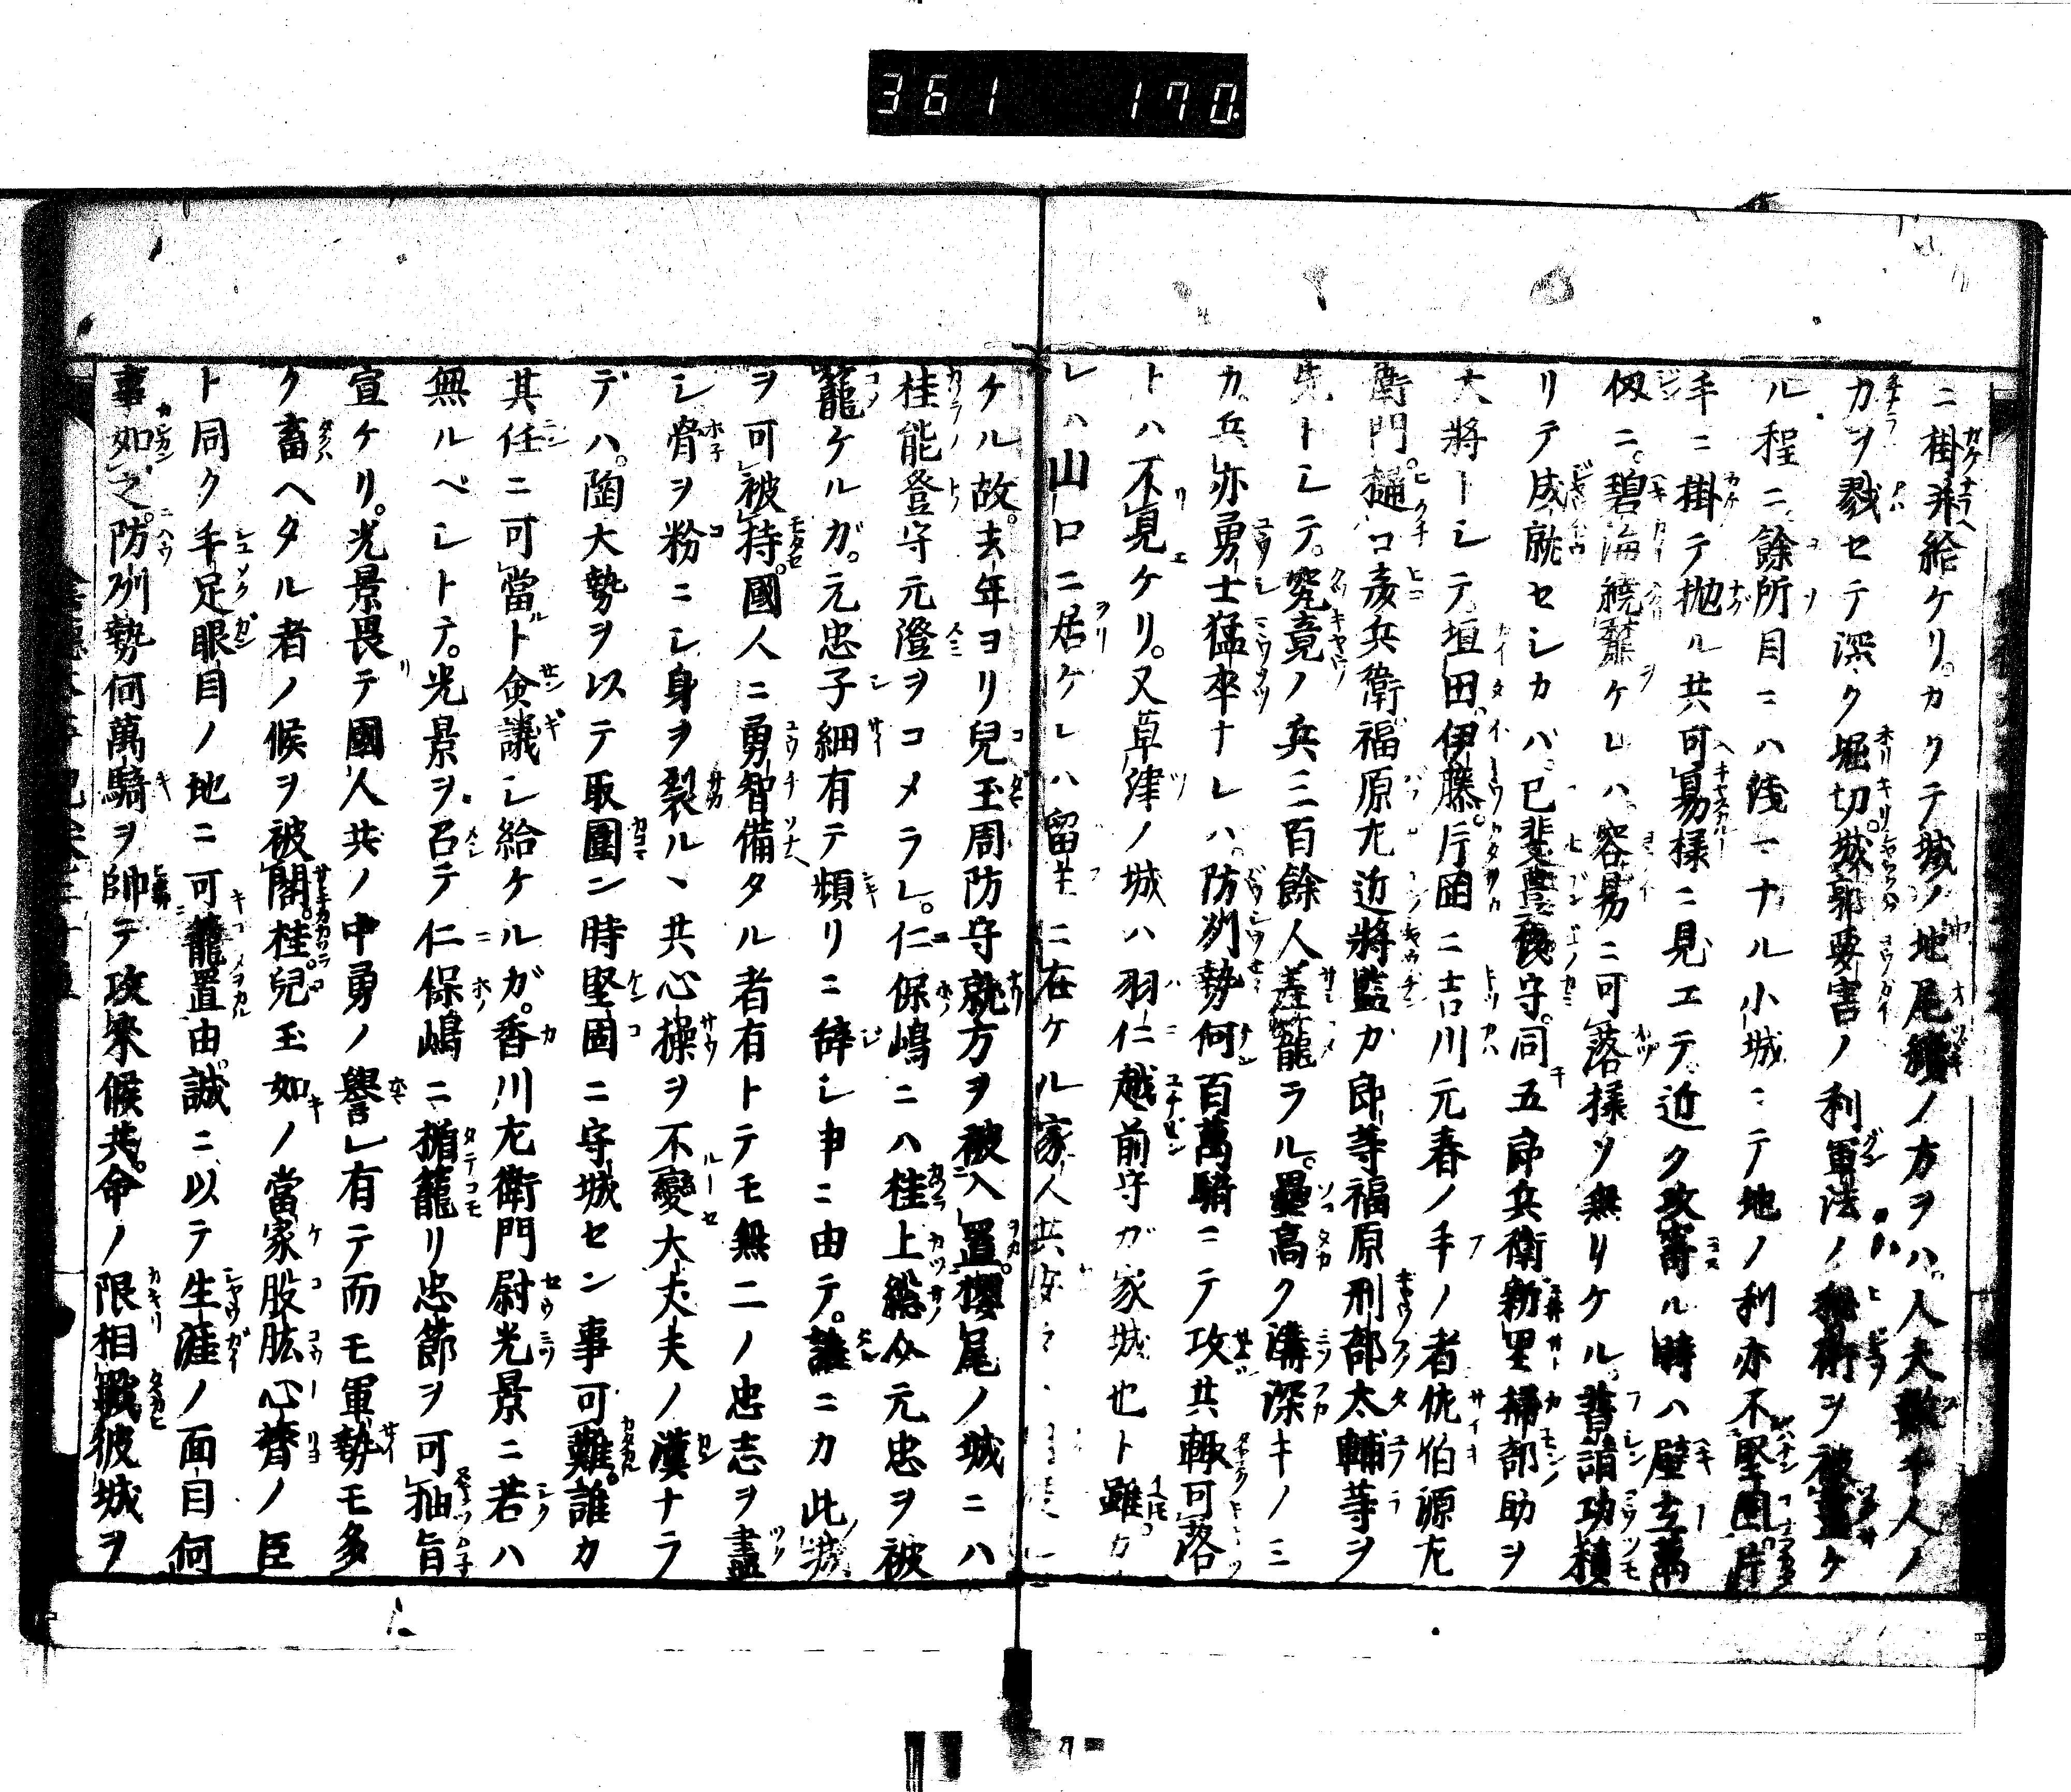 361 170
ニ掛並給ケリ。カクテ城ノ地尾續ノ方ヲハ、人夫數千人ノ
力ヲ戮セテ深ク堀切。城郭要害ノ利軍法ノ秘術ヲ被盡ケ
ル程ニ、餘所目ニハ淺〻ナル小城ニテ地ノ利亦不堅固片
手ニ掛テ抛ル共可易樣ニ見エテ、近ク攻寄ル時ハ壁立萬
仭ニ。碧海繞麓ケレハ、容易ニ可落樣ソ無リケル。普請功積
リテ成就セシカバ、已斐豊後守。同五郎兵衛新里掃部助ヲ
大將トシテ、垣田、伊藤。片岡ニ吉川元春ノ手ノ者佐伯源左
衛門。樋口彦兵衛福原左近將監カ郎等福原刑部太輔等ヲ
先トシテ。究竟ノ兵三百餘人差籠ラル。壘高ク溝深キノミ
カ。兵亦勇士猛卒ナレハ、防州勢何百萬騎ニテ攻共輙可落
トハ不見ケリ。又草津ノ城ハ羽仁越前守ガ家城也ト雖
レハ山口ニ居ケレハ留守ニ在ケル家人共
ケル故。去年ヨリ兒玉周防守就方ヲ被入置。櫻尾ノ城ニハ
桂能登守元澄ヲコメラレ。仁保嶋ニハ桂上総介元忠ヲ被
籠ケルガ。元忠子細有テ頻リニ辭シ申ニ由テ。誰ニカ此城
ヲ可被持。國人ニ勇智備タル者有トテモ無二ノ忠志ヲ盡
シ骨ヲ粉ニシ身ヲ裂ル丶共心操ヲ不變大丈夫ノ漢ナラ
デハ。陶大勢ヲ以テ取圍ン時堅固ニ守城セン事可難。誰カ
其任ニ可當ト僉議シ給ケルガ。香川左衛門尉光景ニ若ハ
無ルベシトテ。光景ヲ召テ仁保嶋ニ楯籠リ忠節ヲ可抽旨
宣ケリ。光景畏テ國人共ノ中勇ノ譽有テ而モ軍勢モ多
ク畜ヘタル者ノ候ヲ被閣。桂。兒玉如キノ當家股肱心膂ノ臣
ト同ク手足眼目ノ地ニ可籠置由。誠ニ以テ生涯ノ面目何
事如之。防州勢何萬騎ヲ帥テ攻来候共。命ノ限相戰彼城ヲ